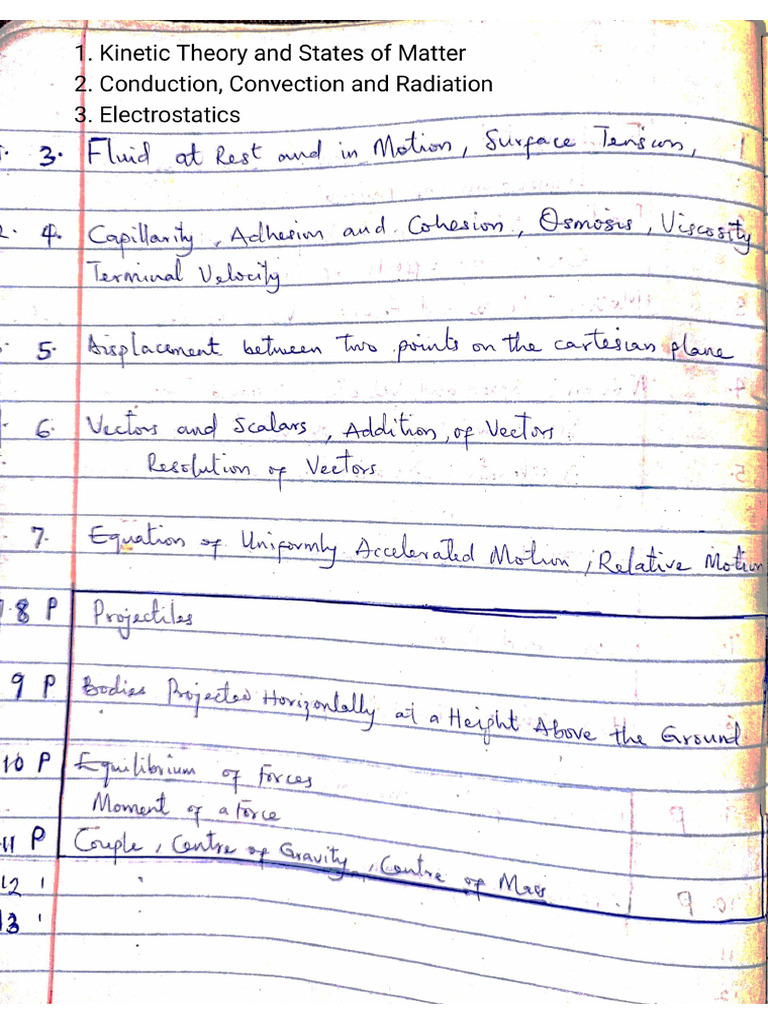 1. Kinetic Theory and States of Matter
2. Conduction, Convection and Radiation
3. Electrostatics
3. Fluid at Rest and in Motion, Surface Tension,
4. Capillarity, Adhesion and Cohesion, Osmosis, Viscosity
Terminal Velocity
5. Displacement between two points on the cartesian plane
6. Vectors and Scalars, Addition, of Vectors
Resolution of Vectors
7. Equation of Uniformly Accelerated Motion, Relative Motion
8 P Projectiles
9 P Bodies Projected Horizontally at a Height Above the Ground
10 P Equilibrium of Forces
Moment of a Force
11 P Couple, Centre of Gravity, Centre of Mass
12
13